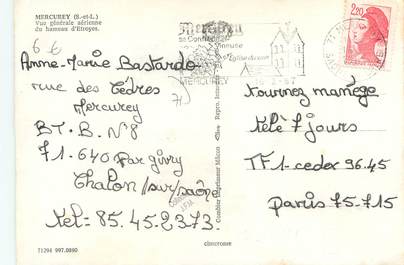 MERCUREY (S.-et-L.)
Vue générale aérienne
du hameau d'Etroyes.
6 €
Anne-Marie Bastardo
rue des Cèdres
Mercurey
BT. B. N°8
71-640 Par givry
Chalon/sur/saône
tel=85.45.23.73.
71294 997.0890
Mercurey
Sa Confrérie
Vineuse
MERCUREY
2,20
Combier Imprimeur Mâcon
cimcrome
Tournez manège
télé 7 jours
TF1-cedex 96.45
paris 75-715